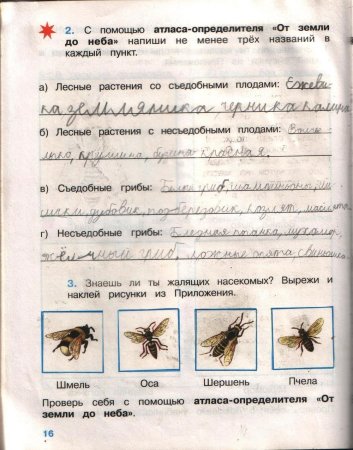 2. С помощью атласа-определителя «От земли
до неба» напиши не менее трёх названий в
каждый пункт.
а) Лесные растения со съедобными плодами: Ежеви-
ка земляника, черника калина
б) Лесные растения с несъедобными плодами:
крушина,
в) Съедобные грибы: Белый гриб, шампиньоны, ли-
сички, дубовик, подберезовик, козляк, маслята
г) Несъедобные грибы: Бледная поганка, мухомор,
жёлчный гриб, ложные опята, свинушка
3. Знаешь ли ты жалящих насекомых? Вырежи и
наклей рисунки из Приложения.
Шмель Оса Шершень Пчела
Проверь себя с помощью атласа-определителя «От
земли до неба».
16